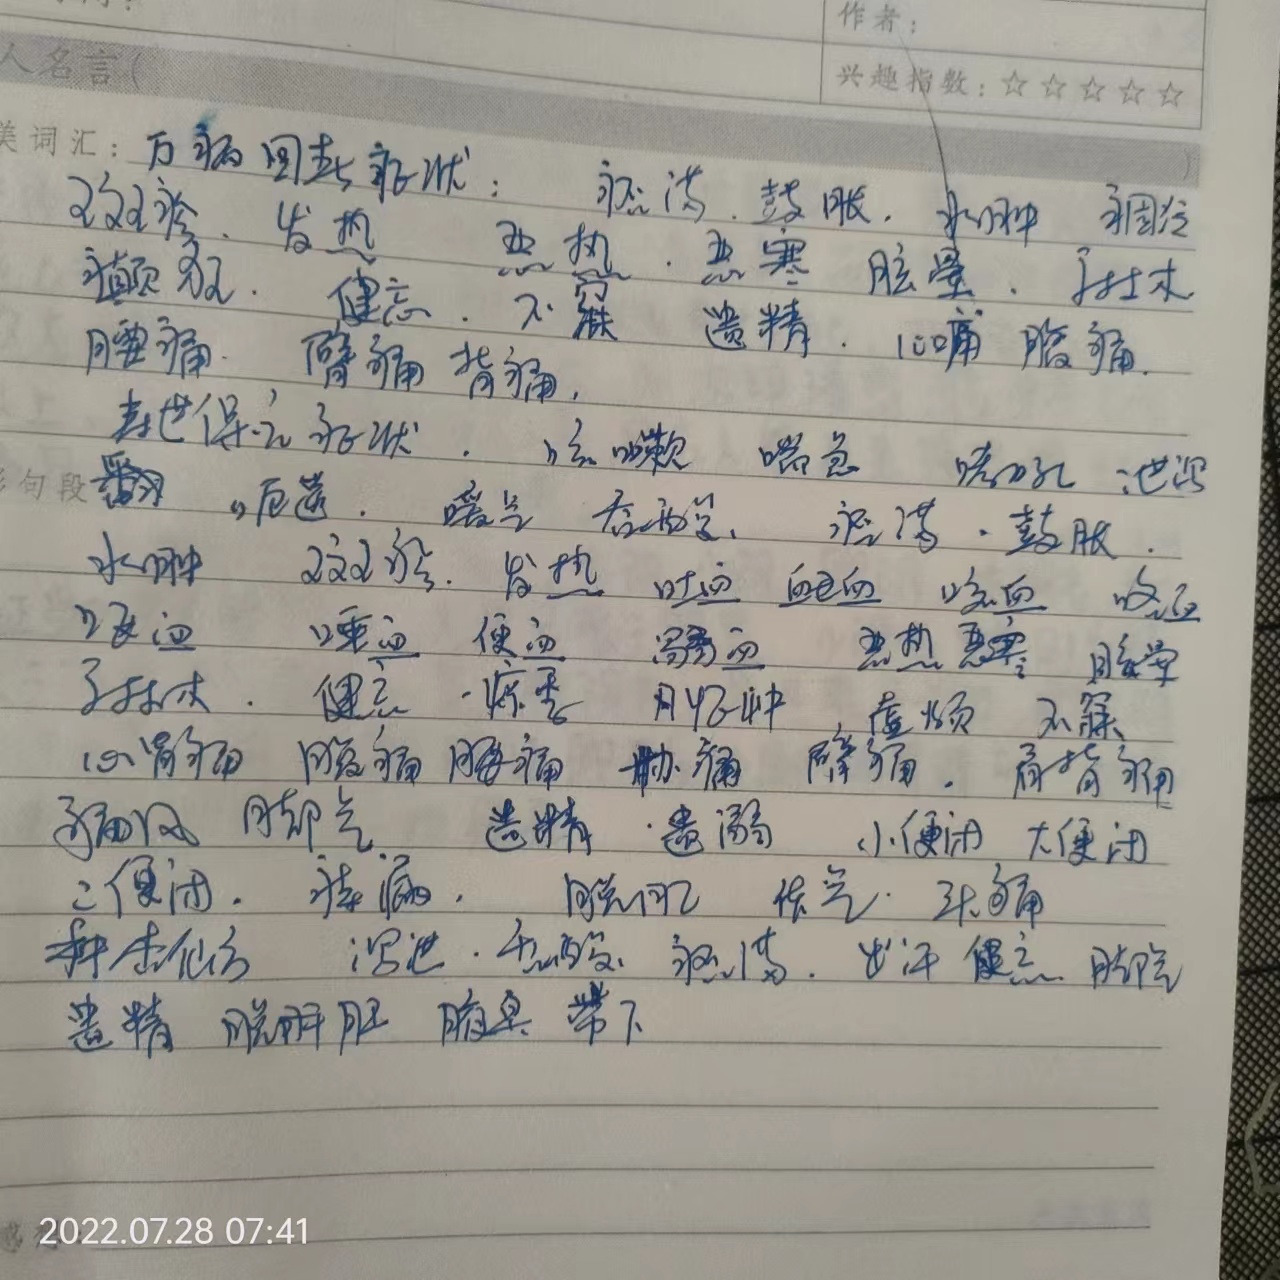 作者：
兴趣指数：☆☆☆☆☆
人名言(
美词汇：万病回春症状： 痞满．鼓胀．水肿 痼冷
发热 恶热．恶寒 眩晕．
癫 健忘．不寐 遗精．心痛 腹痛．
腰痛．臂痛 背痛．
寿世保元症状．咳嗽 喘急 哮吼 泄泻
句段 翻 呃逆．嗳气 吞酸、 痞满．鼓胀．
水肿 发热 吐血 衄血 咳血 咯血
唾血 便血 溺血 恶热 恶寒 眩晕
健忘 惊悸 怔忡 虚烦 不寐
心胃痛 腹痛 腰痛 胁痛 臂痛．肩背痛
痛风 脚气 遗精．遗溺 小便闭 大便闭
二便闭．痔漏． 脱肛 体气．头痛
种杏仙方 泻泄．吞酸 痞满．出汗 健忘 脚气
遗精 脱肛 腋臭 带下
2022.07.28 07:41